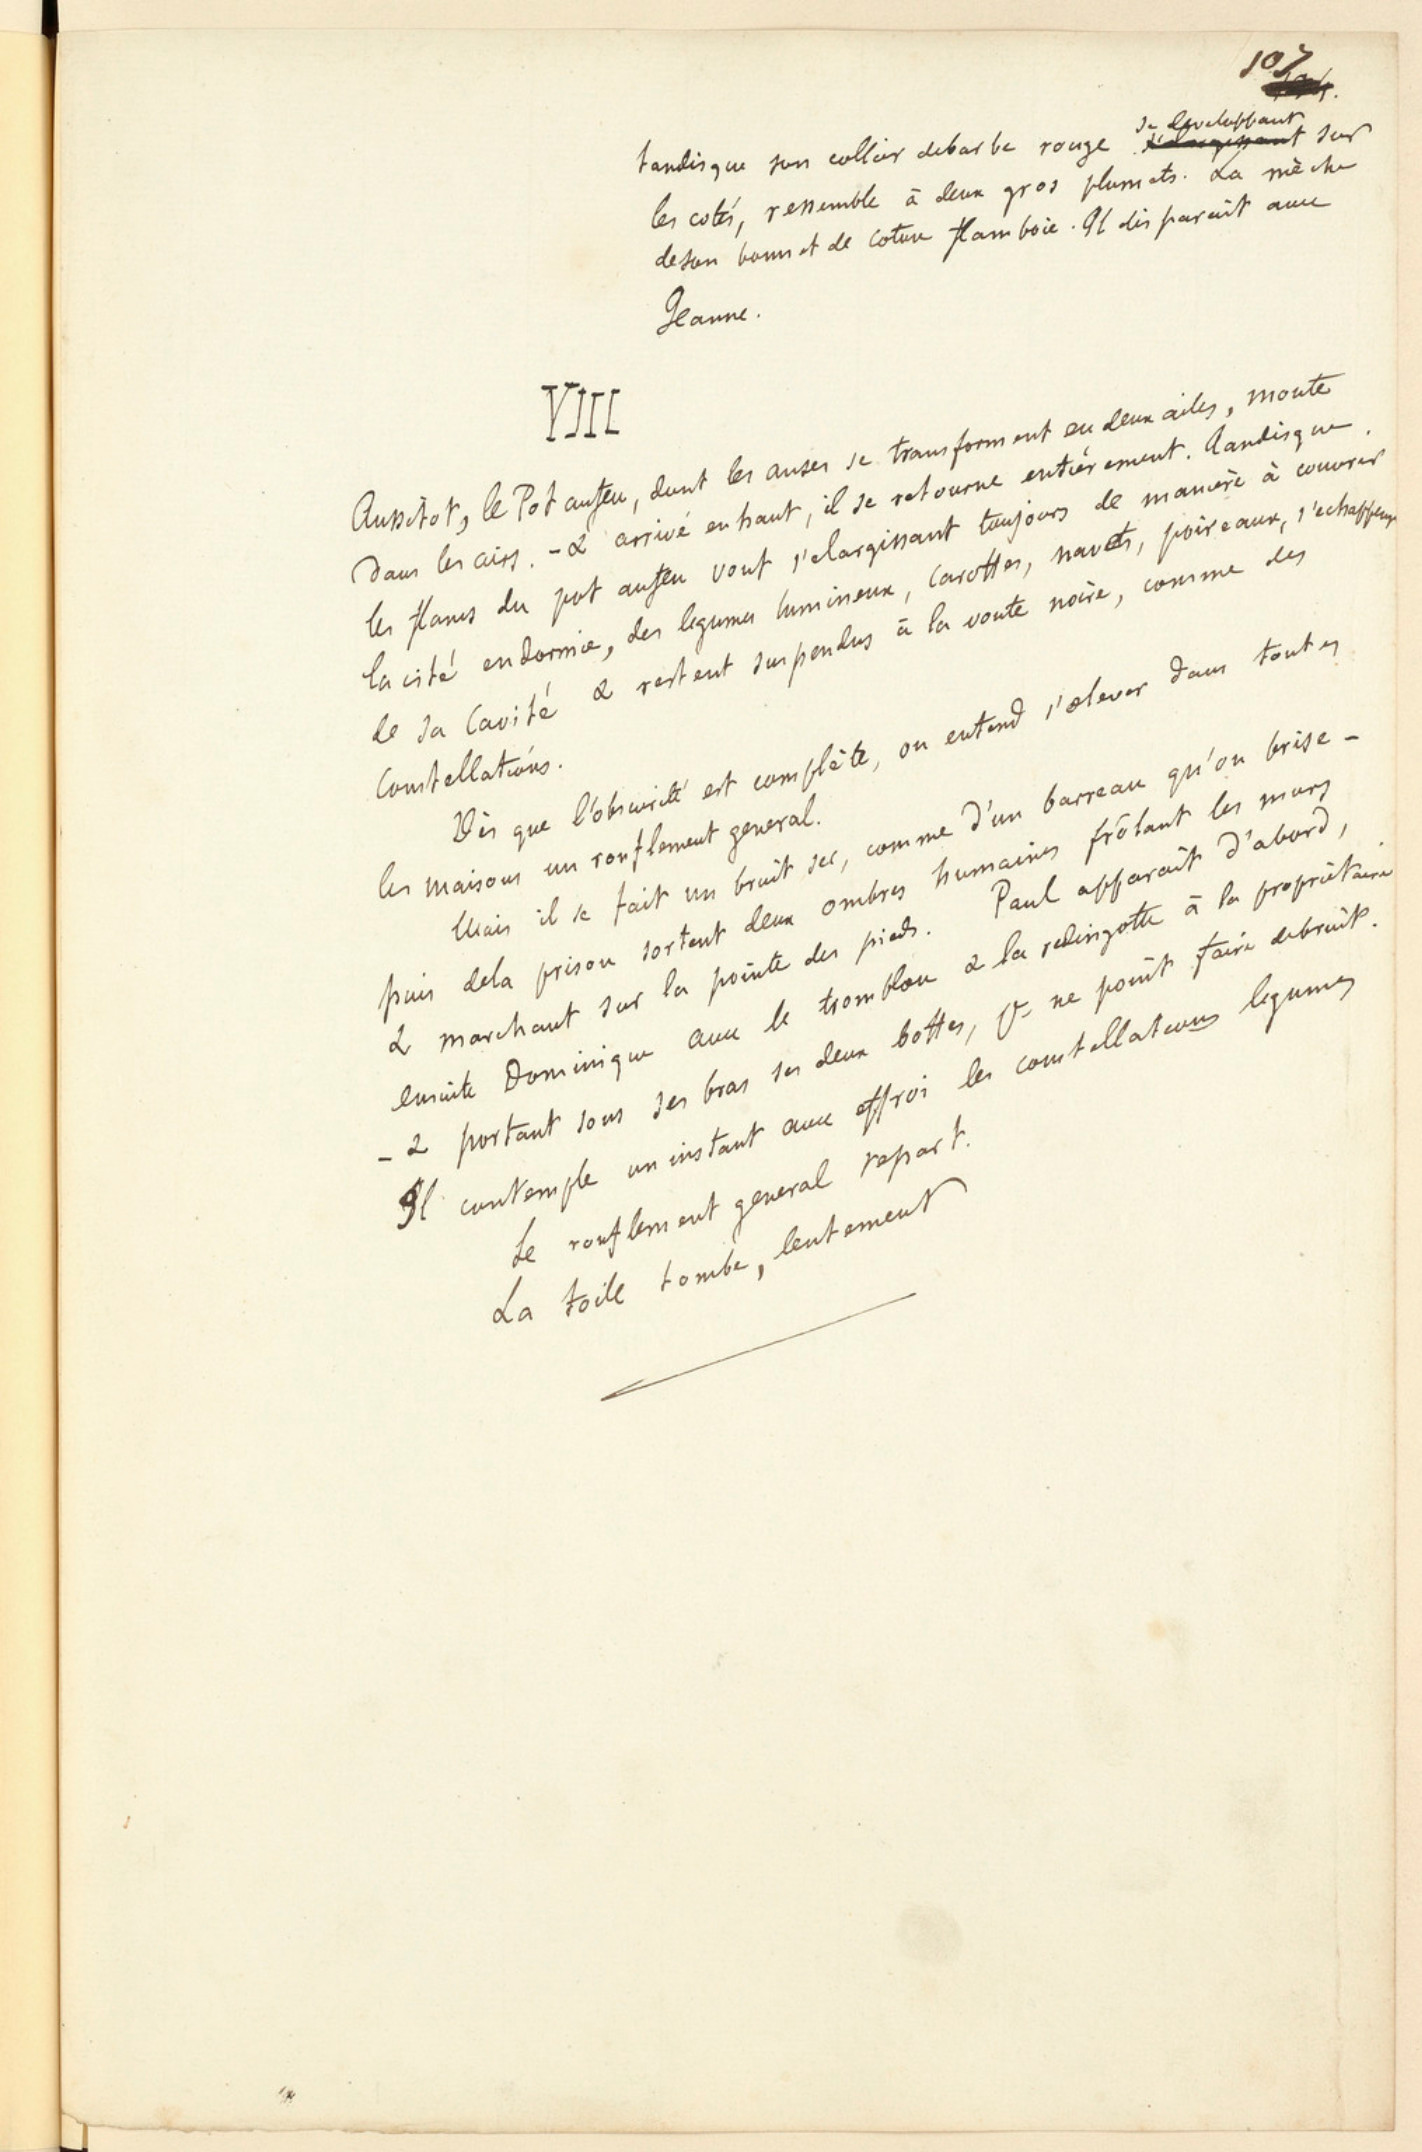 107
tandisque son collier debarbe rouge se developpant s'elargissant sur
les cotés, ressemble à deux gros plumets. La mèche
deson bonnet de coton flamboie. Il disparait avec
Jeanne.
VIII
Aussitôt, le Pot aufeu, dont les anses se transforment en deux ailes, monte
dans les airs. - & arrivé en haut, il se retourne entièrement. Tandisque
les flancs du pot aufeu vont s'elargissant toujours de manière à couvrir
la cité endormie, des legumes lumineux, carottes, navets, poireaux, s'echappent
de sa cavité & restent suspendus à la voute noire, comme des
constellations.
Dès que l'obscurité est complète, on entend s'elever dans toutes
les maisons un ronflement general.
Mais il se fait un bruit sec, comme d'un barreau qu'on brise -
puis dela prison sortent deux ombres humaines frôlant les murs
& marchant sur la pointe des pieds. Paul apparait d'abord,
ensuite Dominique avec le tromblon & la redingotte à la propriétaire
- & portant sous ses bras ses deux bottes, pr ne point faire debruit.
Il contemple un instant avec effroi les constellations legumes
Le ronflement general repart.
La toile tombe, lentement